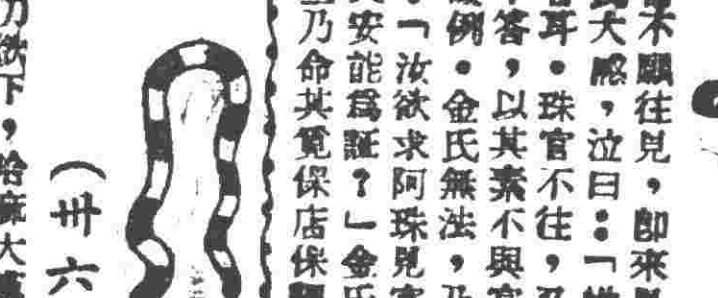 不願往見，卽來
大嚇，泣曰：「
耳。珠官不往，
答，以其素不與
例。金氏無法，乃
。「汝欲求阿珠見
安能爲証？」金氏
乃命其覓保店保
（卅六
刀欲下，哈麻大